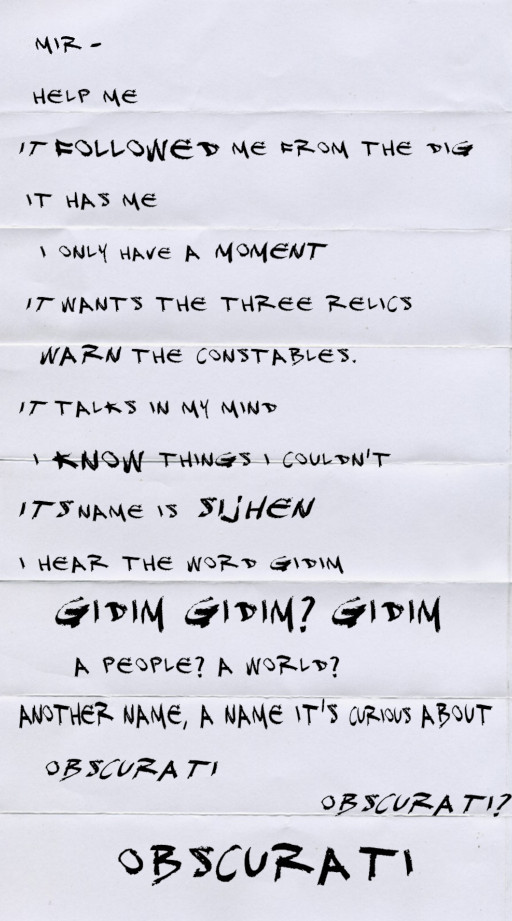 MIR -
HELP ME
IT FOLLOWED ME FROM THE DIG
IT HAS ME
I ONLY HAVE A MOMENT
IT WANTS THE THREE RELICS
WARN THE CONSTABLES.
IT TALKS IN MY MIND
I KNOW THINGS I COULDN'T
ITS NAME IS SIJHEN
I HEAR THE WORD GIDIM
GIDIM GIDIM? GIDIM
A PEOPLE? A WORLD?
ANOTHER NAME, A NAME IT'S CURIOUS ABOUT
OBSCURATI
OBSCURATI?
OBSCURATI